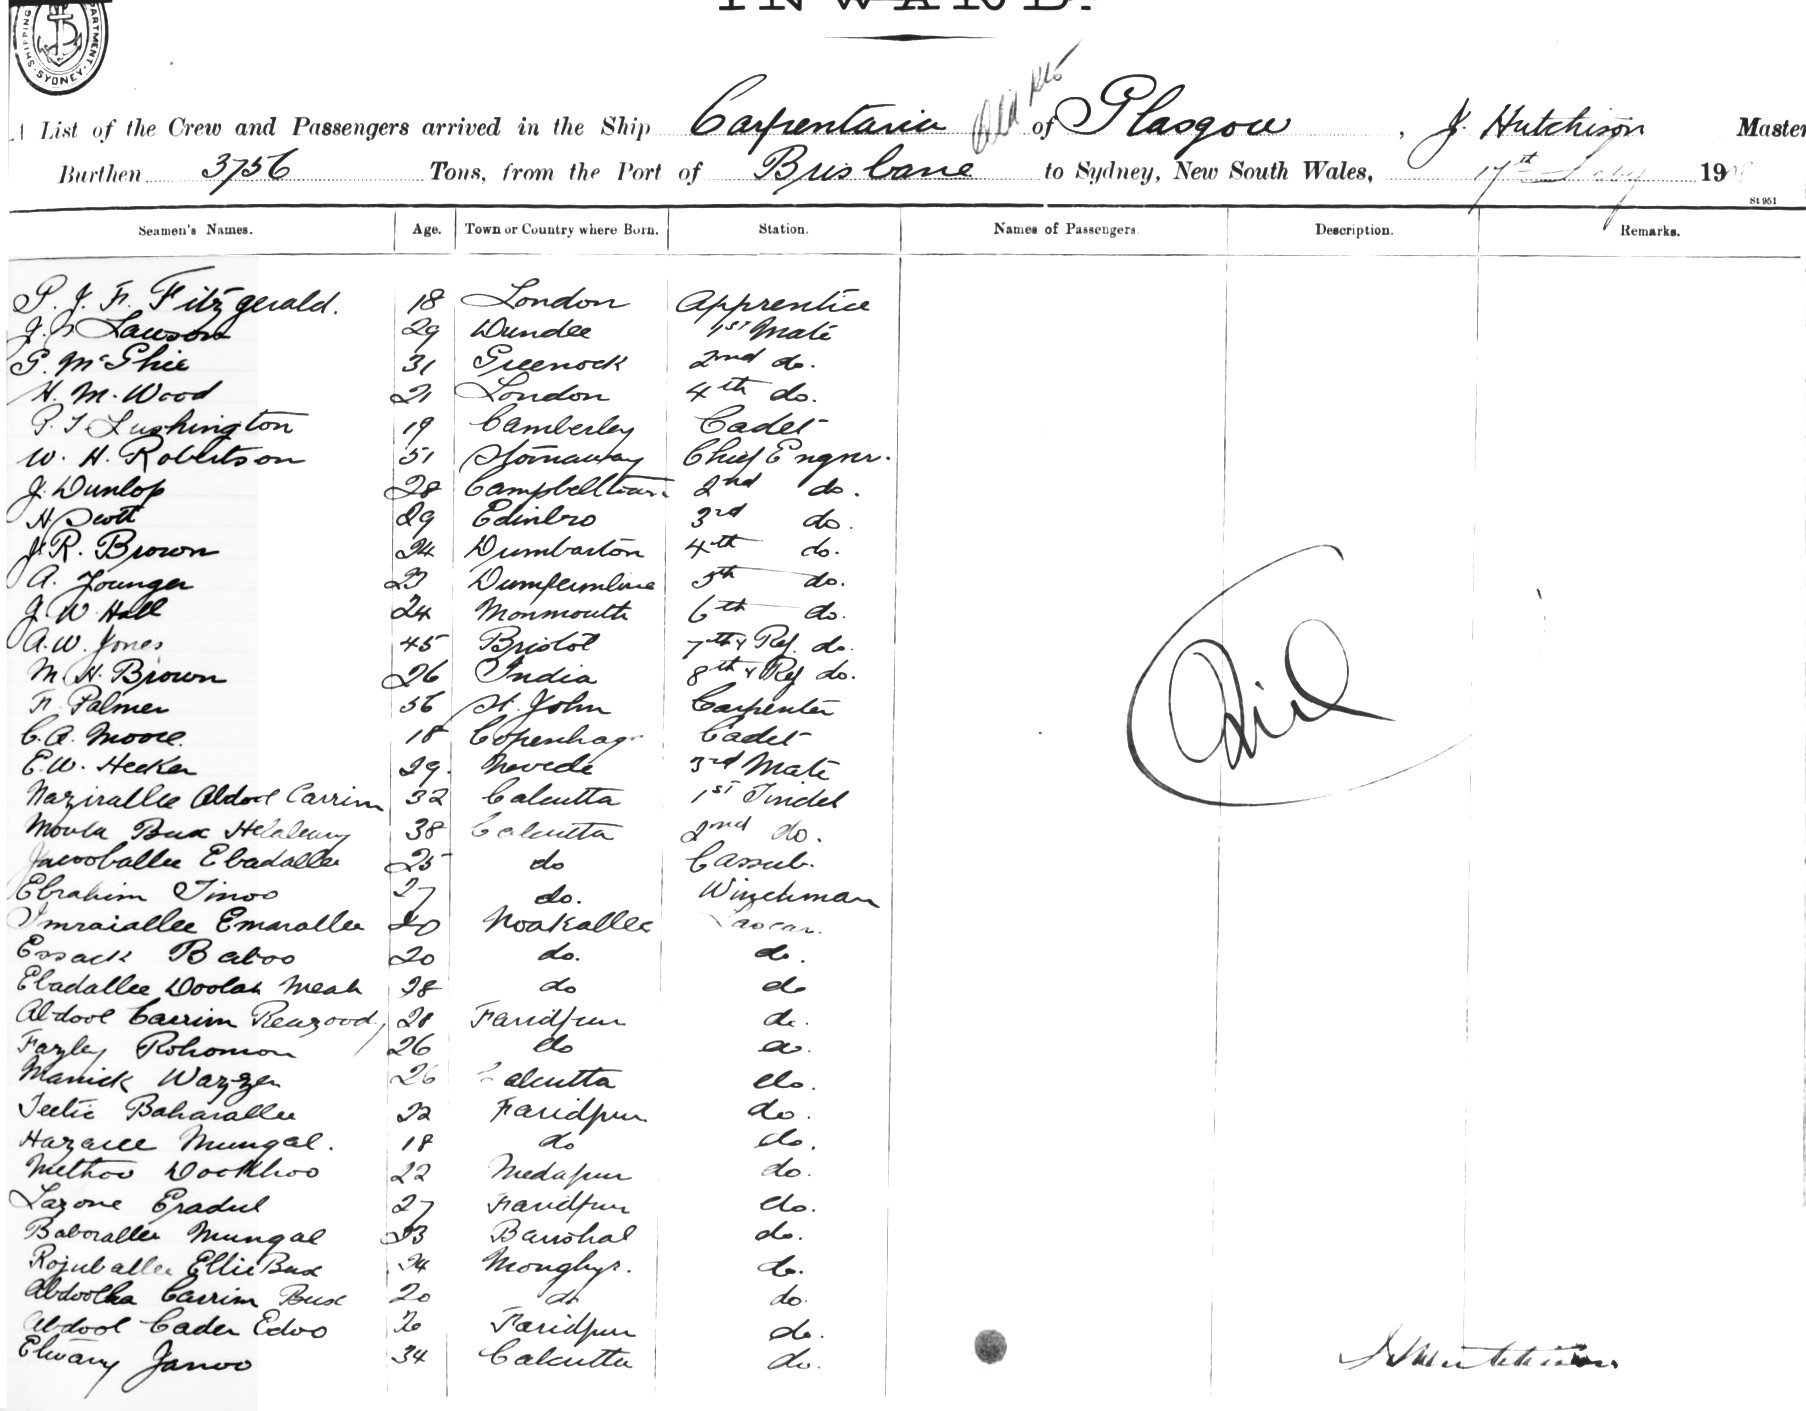 INWARD.
SHIPPING DEPARTMENT SYDNEY
A List of the Crew and Passengers arrived in the Ship Carpentaria of Glasgow, J. Hutchison Master
Burthen 3756 Tons, from the Port of Brisbane to Sydney, New South Wales, 17th 19
St 951
Seamen's Names. Age. Town or Country where Born. Station. Names of Passengers. Description. Remarks.
P. J. F. Fitzgerald. 18 London Apprentice
J. Lawson 29 Dundee 1st Mate
G. McGhie 31 Greenock 2nd do.
H. M. Wood 21 London 4th do.
P. T Lushington 19 Camberley Cadet
W. H. Robertson 51 Stornaway Chief Engnr.
J. Dunlop 28 Campbelltown 2nd do.
H Scott 29 Edinbro 3rd do.
J. R. Brown 24 Dumbarton 4th do.
A. Younger 23 Dumfermline 5th do.
J. W. Hall 24 Monmouth 6th do.
A. W. Jones 45 Bristol 7th & Ref. do.
M H. Brown 26 India 8th & Ref do.
F. Palmer 56 St. John Carpenter
C. A. Moore. 18 Copenhag Cadet
E. W. Hecker 29. 3rd Mate
Nazirallee Abdool Carrim 32 Calcutta 1st Tindel
Moula Bux 38 Calcutta 2nd do.
Jacooballee Ebadallee 25 do Cassub.
Ebrahim Tinoo 27 do. Winchman
Imraiallee Emarallee 20 Noakallee Lascar.
Essack Baboo 20 do. do.
Ebadallee Doolah Meah 28 do do
Abdool Carrim 28 Faridpur do.
Fazley Rohomon 26 do do.
Manick Wazzer 26 Calcutta do.
Teetie Baharallee 22 Faridpur do.
Hazaree Mungal. 18 do do.
Methoo Dookhoo 22 Medapur do.
Lazone Eradul 27 Faridpur do.
Baborallee Mungal 23 Barishal do.
Rojuballee Ellie Bux 24 Monghyr. do.
Abdoolha Carrim Bux 20 do do.
Abdool Cader Edoo 26 Faridpur do.
Elwary Janoo 34 Calcutta do.